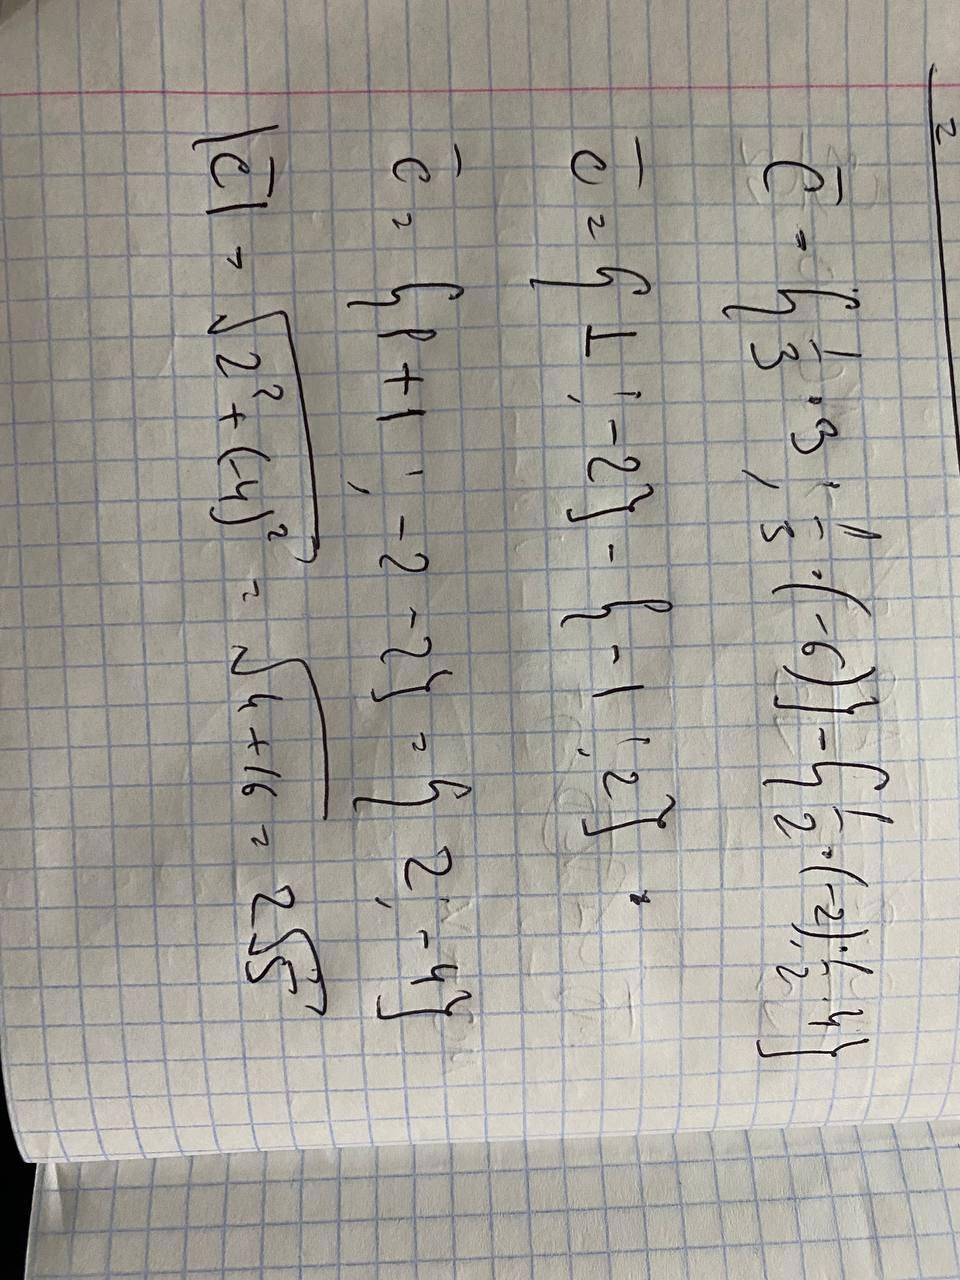 2
c̄ = {1/3 · 3 ; 1/3 · (-6)} - {1/2 · (-2) ; 1/2 · 4}
c̄ = {1 ; -2} - {-1 ; 2}
c̄ = {1+1 ; -2-2} = {2 ; -4}
|c̄| = √(2² + (-4)²) = √(4+16) = 2√5